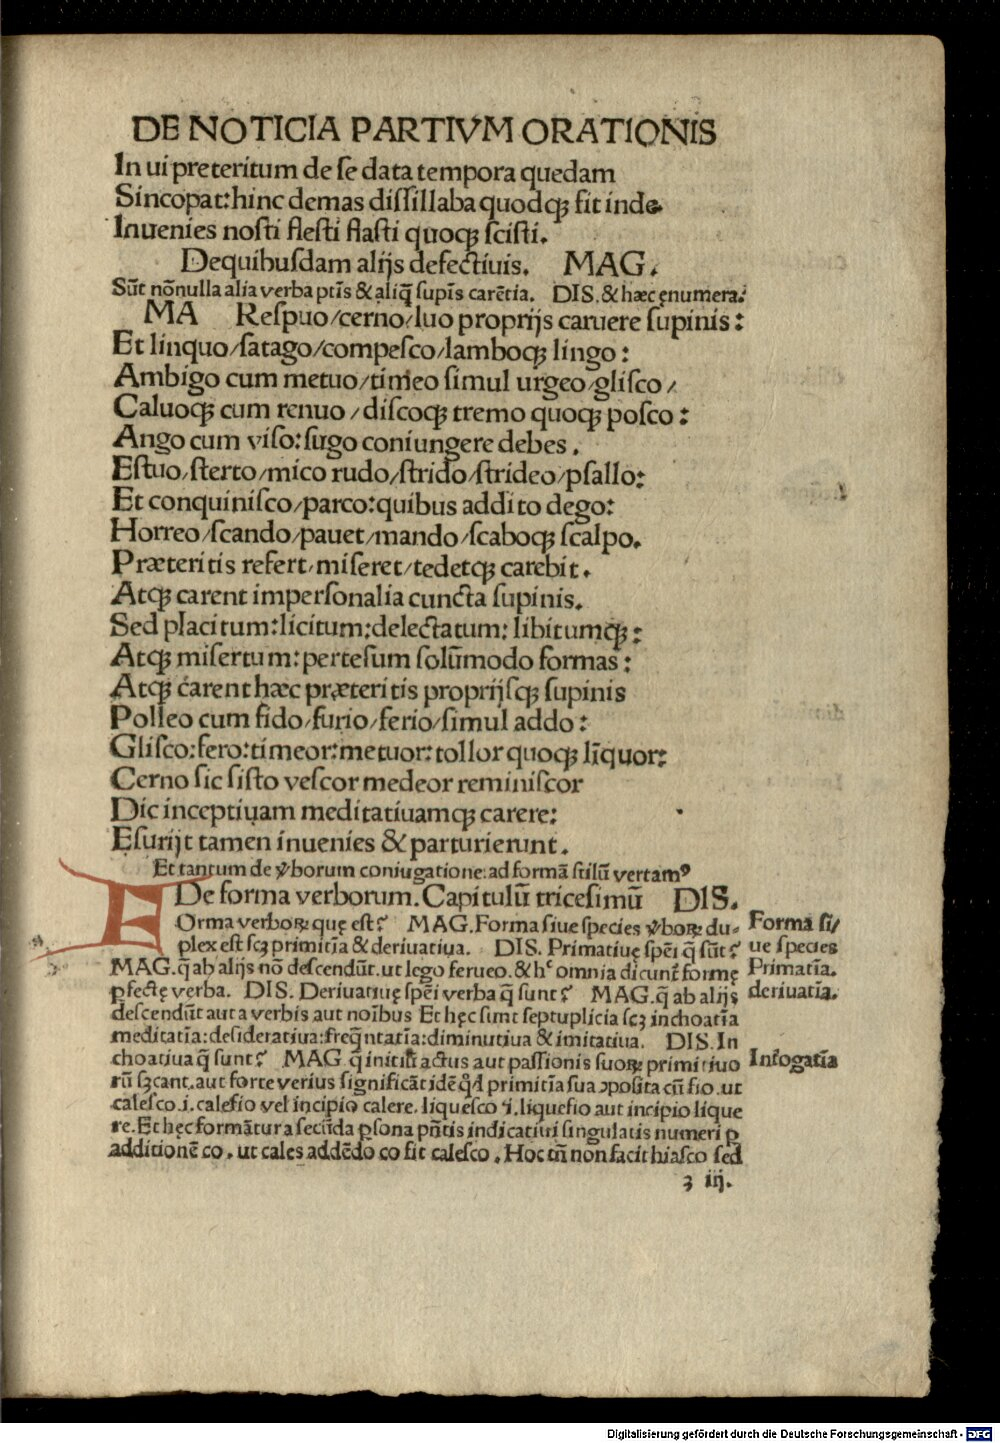 DE NOTICIA PARTIVM ORATIONIS
In ui preteritum de se data tempora quedam
Sincopat: hinc demas dissillaba quodqꝫ fit inde
Inuenies nosti flesti flasti quoqꝫ scisti.
Dequibusdam alijs defectiuis. MAG.
Sūt nōnulla alia verba ptīs & aliq̄ supīs carētia. DIS. & hæc enumera.
MA Respuo/cerno/luo proprijs caruere supinis:
Et linquo/satago/compesco/lamboqꝫ lingo:
Ambigo cum metuo/timeo simul urgeo/glisco/
Caluoqꝫ cum renuo/discoqꝫ tremo quoqꝫ posco:
Ango cum viso: sugo coniungere debes.
Estuo/sterto/mico rudo/strido/strideo/psallo:
Et conquinisco/parco: quibus addito dego:
Horreo/scando/pauet/mando/scaboqꝫ scalpo.
Præteritis refert/miseret/tedetqꝫ carebit.
Atqꝫ carent impersonalia cuncta supinis.
Sed placitum: licitum: delectatum: libitumqꝫ:
Atqꝫ misertum: pertesum solūmodo formas:
Atqꝫ carent hæc præteritis proprijsqꝫ supinis
Polleo cum fido/furio/ferio/simul addo:
Glisco: fero: timeor: metuor: tollor quoqꝫ līquor:
Cerno sic sisto vescor medeor reminiscor
Dic inceptiuam meditatiuamqꝫ carere:
Esurijt tamen inuenies & parturierunt.
Et tantum de ꝟborum coniugatione: ad formā stilū vertamꝰ
De forma verborum. Capitulū tricesimū DIS.
FOrma verboꝝ quę est? MAG. Forma siue species ꝟboꝝ du-
plex est scꝫ primitīa & deriuatiua. DIS. Primatiuę spēi q̄ sūt?
MAG. q̄ ab alijs nō descendūt. ut lego ferueo. & hᶜ omnia dicunt̄ formę
ꝑfectę verba. DIS. Deriuatiuę spēi verba q̄ sunt? MAG. q̄ ab alijs
descendūt aut a verbis aut noībus Et hęc sunt septuplicia scꝫ inchoatīa
meditatīa: desideratiua: freq̄ntatīa: diminutiua & imitatiua. DIS. In
choatiua q̄ sunt? MAG. q̄ initiū actus aut passionis suoꝝ primitiuo
rū sꝫcant. aut forte verius significāt idē qd̄ primitīa sua ꝯposita cū fio. ut
calesco .i. calefio vel incipio calere. liquesco .i. liquefio aut incipio lique
re. Et hęc formātur a secūda ꝑsona pn̄tis indicatiui singularis numeri ꝑ
additionē co. ut cales addēdo co fit calesco. Hoc tn̄ non facit hiasco sed
ꝫ iij.
Forma si/
ue species
Primatīa.
deriuatīa.
Inſogatīa
Digitalisierung gefördert durch die Deutsche Forschungsgemeinschaft - DFG